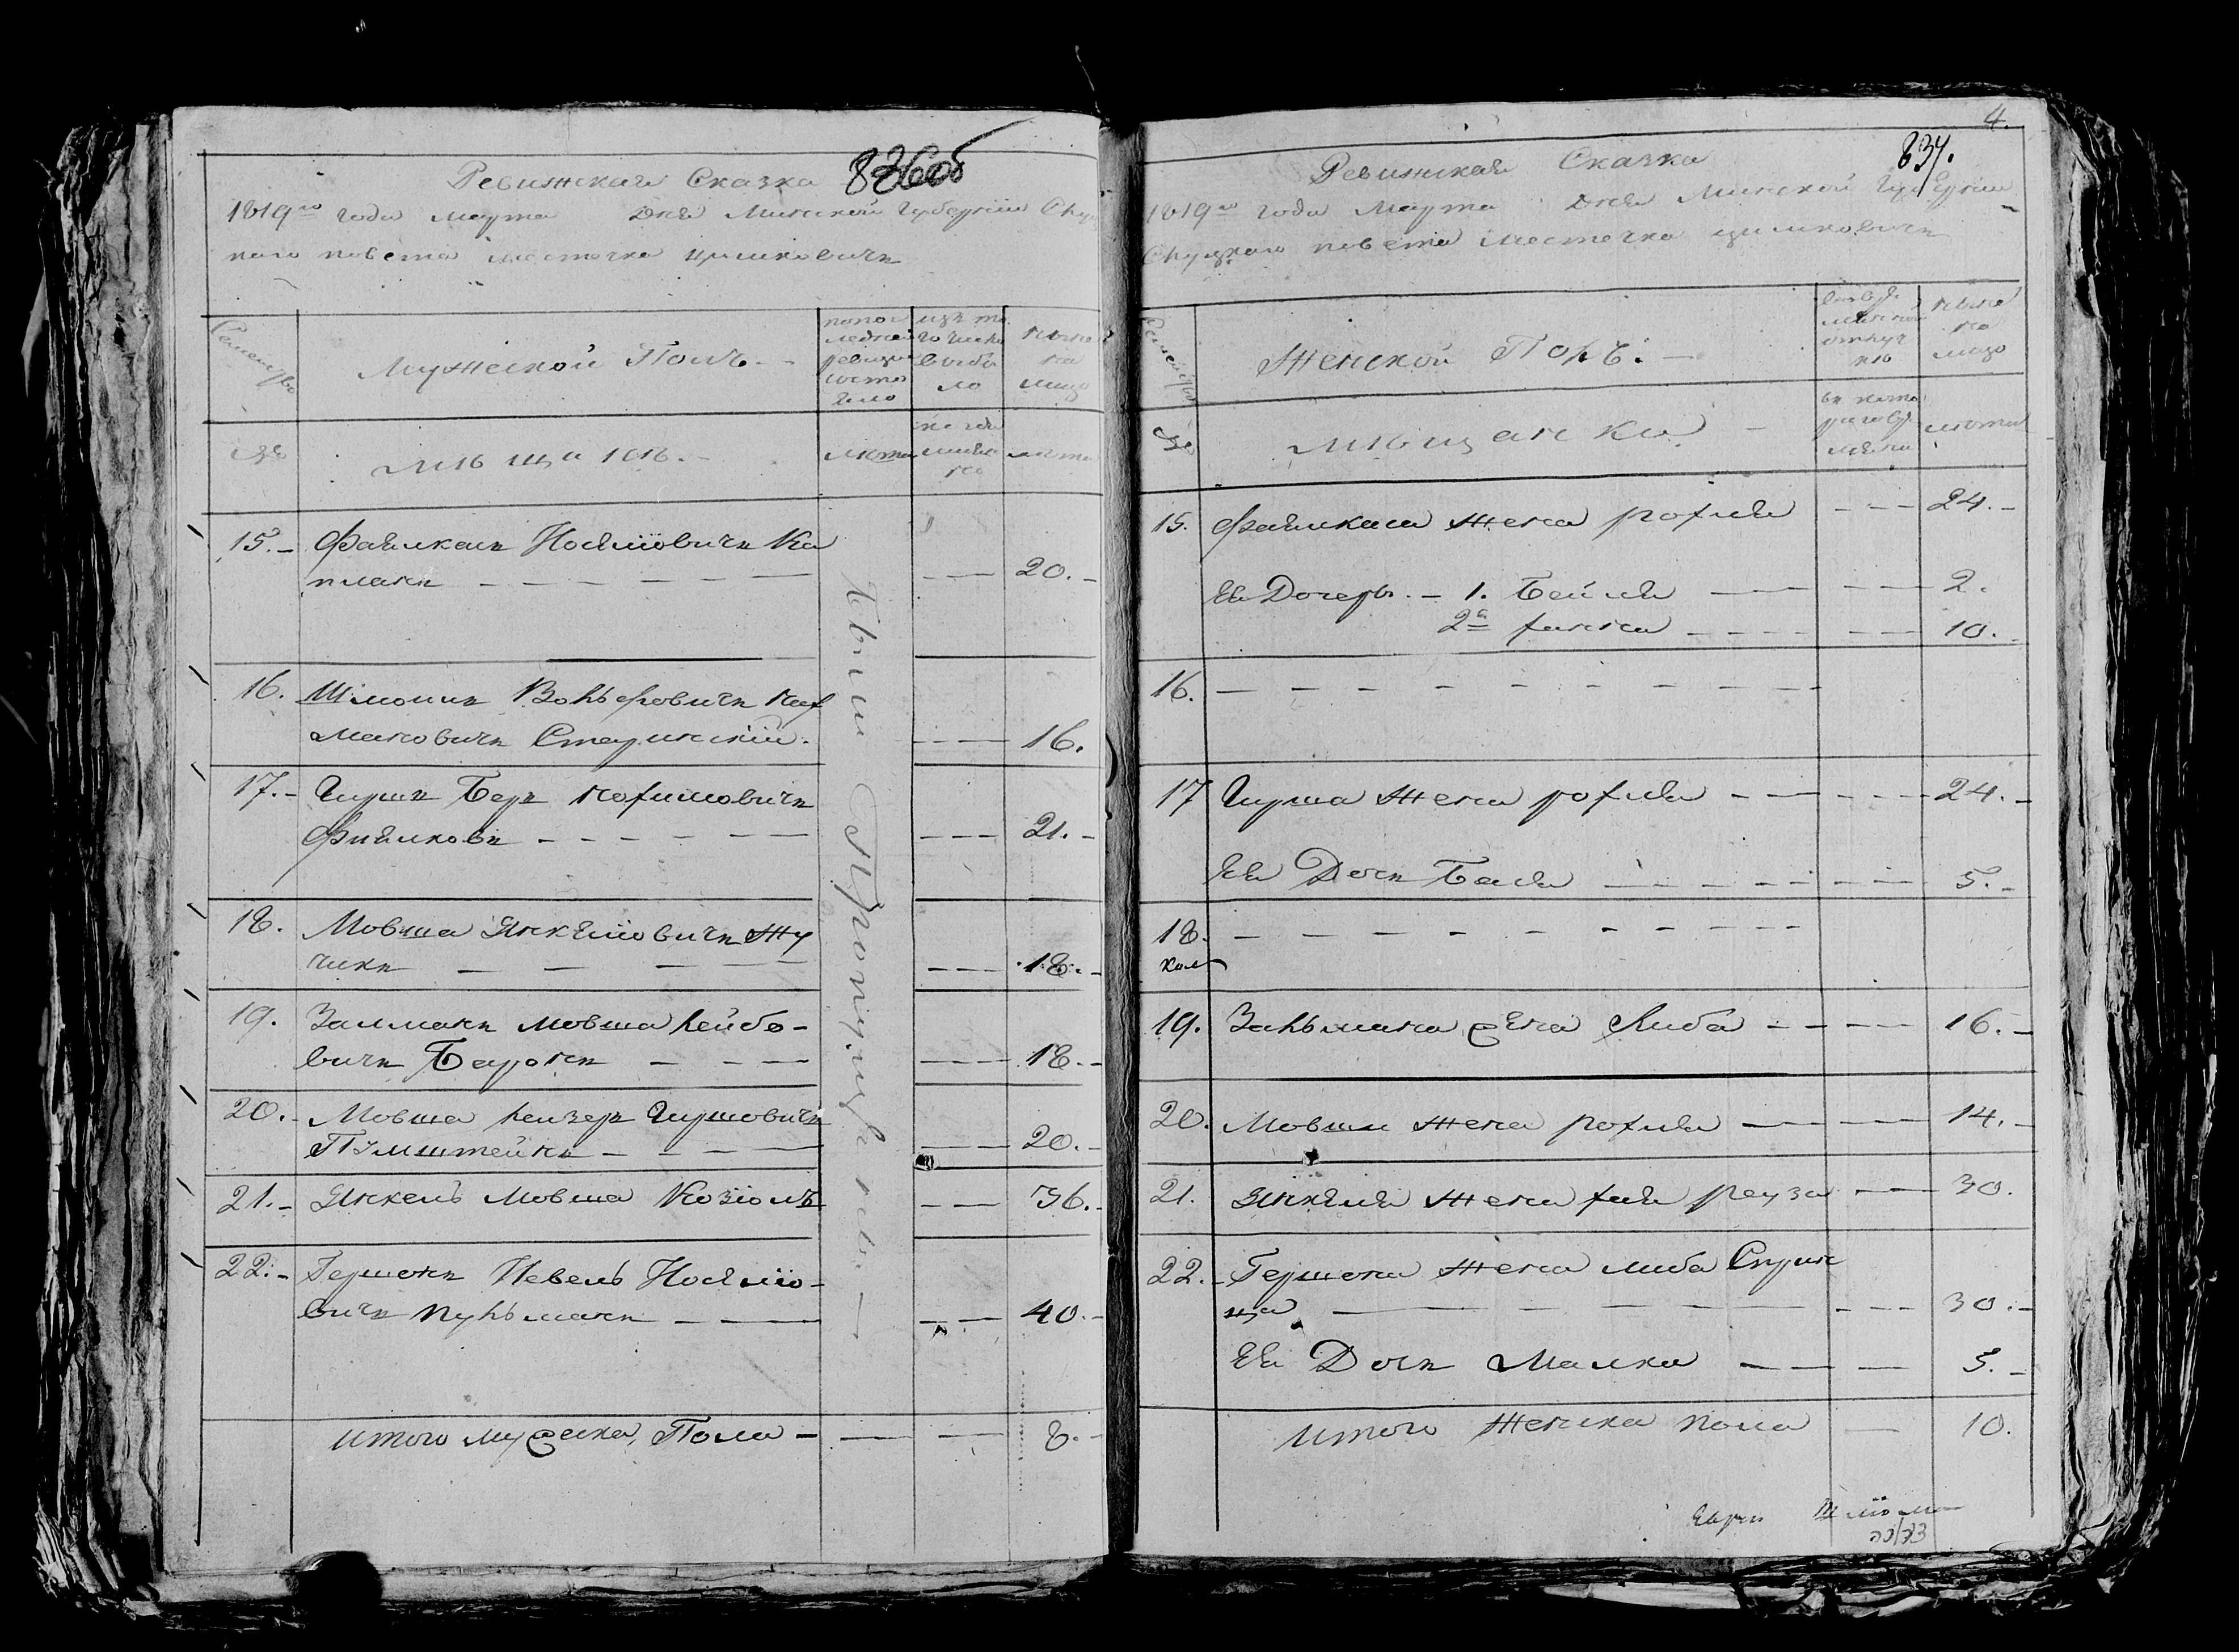 836об
Ревижская Сказка
1819го года марта дня Минской Губернии Слуц
каго повета местечка цимковичъ
Семейство
Мужеской Полъ. –
по пос
ледней
ревизии
состо
яло
изъ то
го числа
выбы
ло
ныне
на
лицо
№
мѣщане. –
лета
когда
имян
но
лета
Явный Пропущенъ —
15. – Файлкаи Носялiовичъ Ка
планъ — — — — 20. –
16. Шмоилъ Вольфовичъ Каф
мановичъ Старинскiй. — 16.
17. – Гиршъ Беръ нохимовичъ
Фиялковъ — — — 21. –
18. Мовша Янкелiовичъ Жу
чикъ — — — 18. –
19. Залманъ мовша лейбо –
вичъ Баронъ — — — 18. –
20. – Мовша лейзеръ Гиршовичъ
Пумштейнъ — — — 20. –
21. – Янкель Мовша Козiолъ — — 36. –
22. – Гершонъ Невель Носялiо –
вичъ пульманъ — — — 40. –
итого мужеска Пола — — — 8. –
4.
837.
Ревижская Сказка
1819го года Марта дня Минской Губернии
Слуцкаго повета местечка цимковичъ
Семейство
Женской Полъ. –
во вре
менной
отлуч
кѣ
ныне
на
лицо
№
мѣщанки –
съ кото
раго вре
мяни
лета
15. Файлкаа жена рохля — — 24. –
Ея Дочери. – 1. Бейля — — 2.
2я ханна — — 10. –
16. — — — — —
17 Гирша жена рохля — — 24. –
Ея Дочь Бася — — 5. –
18. — — — — —
хол
19. Зальмана жена Либа — — 16. –
20. Мовши жена рохля — — 14. –
21. Янкеля жена хая рейза — — 30.
22. – Гершона жена либа Сприн
ца — — — 30. –
Ея Дочь Малка — — 5. –
итого женска пола — 10.
Еврей Шлiома